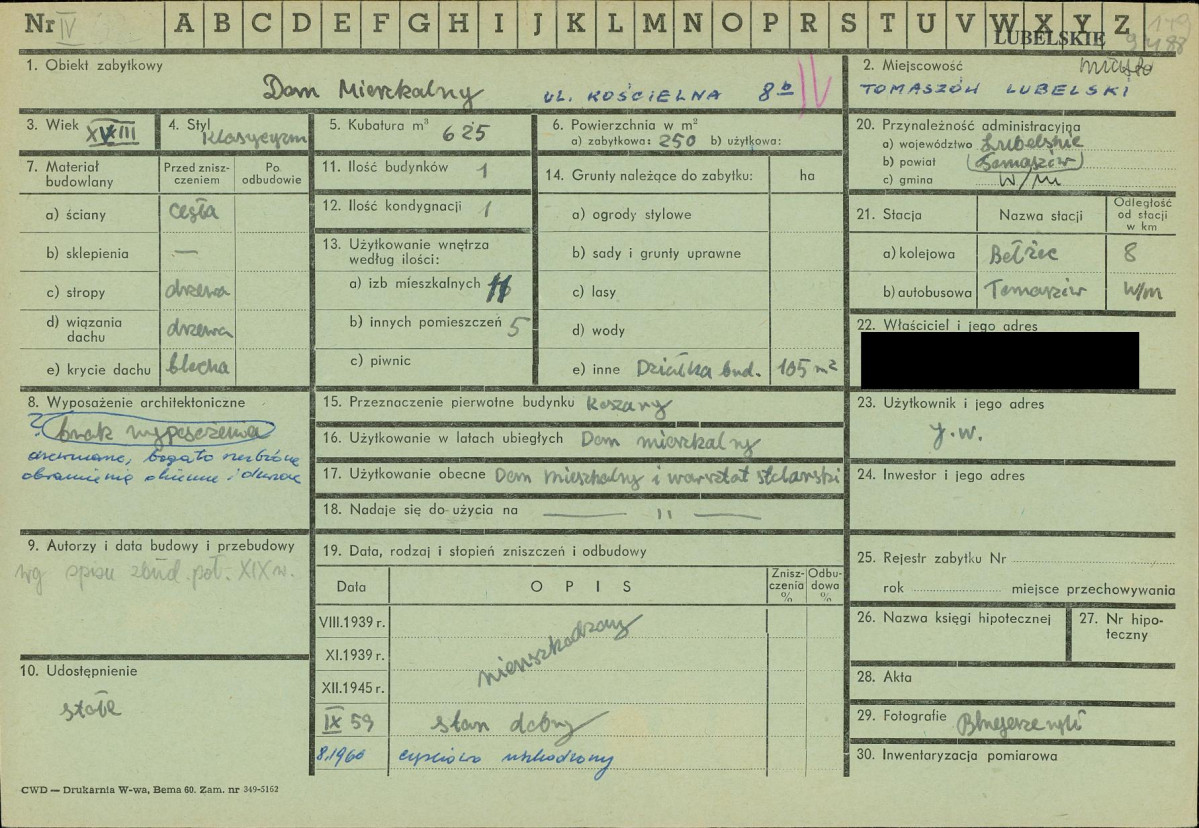 Nr IV A B C D E F G H I J K L M N O P R S T U V W X Y Z
LUBELSKIE
1. Obiekt zabytkowy
Dom Mieszkalny UL. KOŚCIELNA 8b IV
2. Miejscowość miasto
TOMASZÓW LUBELSKI
3. Wiek XVIII
4. Styl Klasycyzm
5. Kubatura m³ 625
6. Powierzchnia w m²
a) zabytkowa: 250 b) użytkowa:
20. Przynależność administracyjna
a) województwo Lubelskie
b) powiat Tomaszów
c) gmina W/M
7. Materiał budowlany
Przed znisz-
czeniem
Po
odbudowie
a) ściany cegła
b) sklepienia —
c) stropy drzewo
d) wiązania
dachu drzewo
e) krycie dachu blacha
11. Ilość budynków 1
12. Ilość kondygnacji 1
13. Użytkowanie wnętrza
według ilości:
a) izb mieszkalnych
b) innych pomieszczeń 5
c) piwnic
14. Grunty należące do zabytku: ha
a) ogrody stylowe
b) sady i grunty uprawne
c) lasy
d) wody
e) inne Działka bud. 105 m²
21. Stacja Nazwa stacji
Odległość
od stacji
w km
a) kolejowa Bełżec 8
b) autobusowa Tomaszów w/m
22. Właściciel i jego adres
8. Wyposażenie architektoniczne
? brak wyposażenia
drewniane, bogato rzeźbione
obramienia okienne i
15. Przeznaczenie pierwotne budynku Koszary
16. Użytkowanie w latach ubiegłych Dom mieszkalny
17. Użytkowanie obecne Dom mieszkalny i warsztat stolarski
18. Nadaje się do użycia na — 11 —
23. Użytkownik i jego adres
j.w.
24. Inwestor i jego adres
9. Autorzy i data budowy i przebudowy
wg spisu zbud. poł. XIX w.
10. Udostępnienie
stałe
19. Data, rodzaj i stopień zniszczeń i odbudowy
Data O P I S
Znisz-
czenia
%
Odbu-
dowa
%
VIII.1939 r.
XI.1939 r. nieuszkodzony
XII.1945 r.
IX 59 stan dobry
8.1960 częściowo uszkodzony
25. Rejestr zabytku Nr
rok miejsce przechowywania
26. Nazwa księgi hipotecznej
27. Nr hipo-
teczny
28. Akta
29. Fotografie
30. Inwentaryzacja pomiarowa
CWD — Drukarnia W-wa, Bema 60. Zam. nr 349-5162